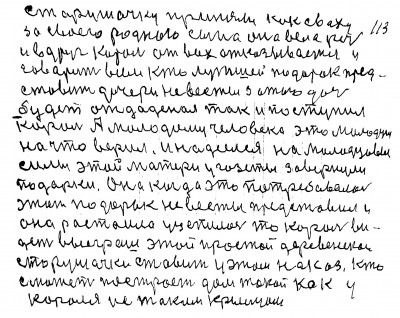 старушачку приняли как сваху 113
за своего родного сына она вела реч
и вдруг карол от вах отказывается и
говорит вам кть лутшей подарок пред-
ставит дочери невесты за тово доч
будет отдаденая так и поступил
Карол А молодому человека это молодцы
на что верил. И надеялся на молодцовы
силы этой матери
подарки. Она когда это потребавалас
этот подарок невесты предтставил и
она растаила то карол ви-
дет выеграш этой простой деревенской
старушачки ставит и этот наказ. Кто
сможет построет дом такой как у
короля не таким крыльцом